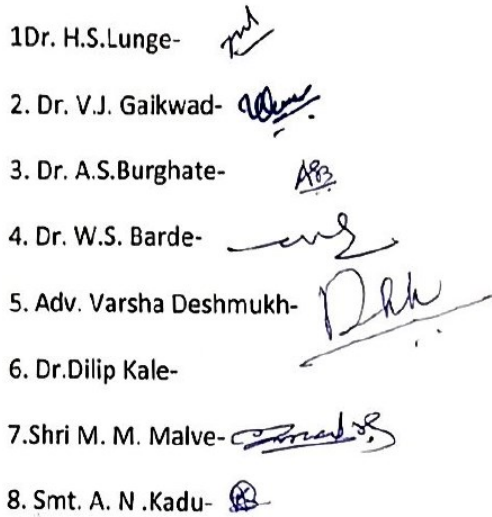 1Dr. H.S.Lunge-
2. Dr. V.J. Gaikwad-
3. Dr. A.S.Burghate- ASB
4. Dr. W.S. Barde-
5. Adv. Varsha Deshmukh-
6. Dr.Dilip Kale-
7.Shri M. M. Malve-
8. Smt. A. N .Kadu-